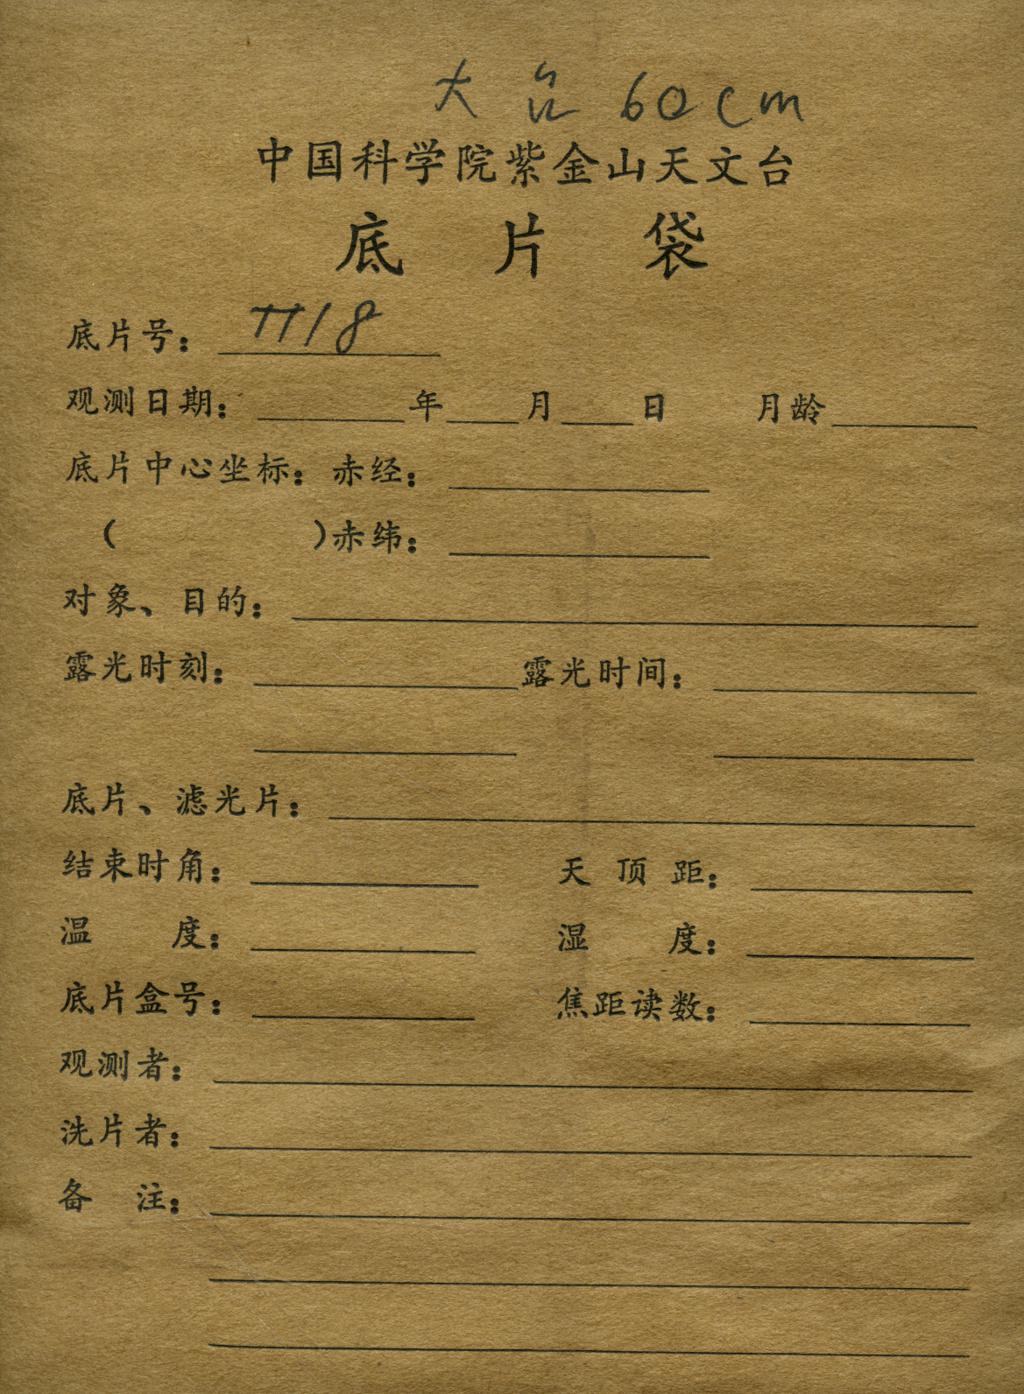 大台 60cm
中国科学院紫金山天文台
底片袋
底片号：TT18
观测日期：____年__月__日 月龄____
底片中心坐标：赤经：____
（ ）赤纬：____
对象、目的：____
露光时刻：____露光时间：____
底片、滤光片：____
结束时角：____ 天顶距：____
温 度：____ 湿 度：____
底片盒号：____ 焦距读数：____
观测者：____
洗片者：____
备 注：____